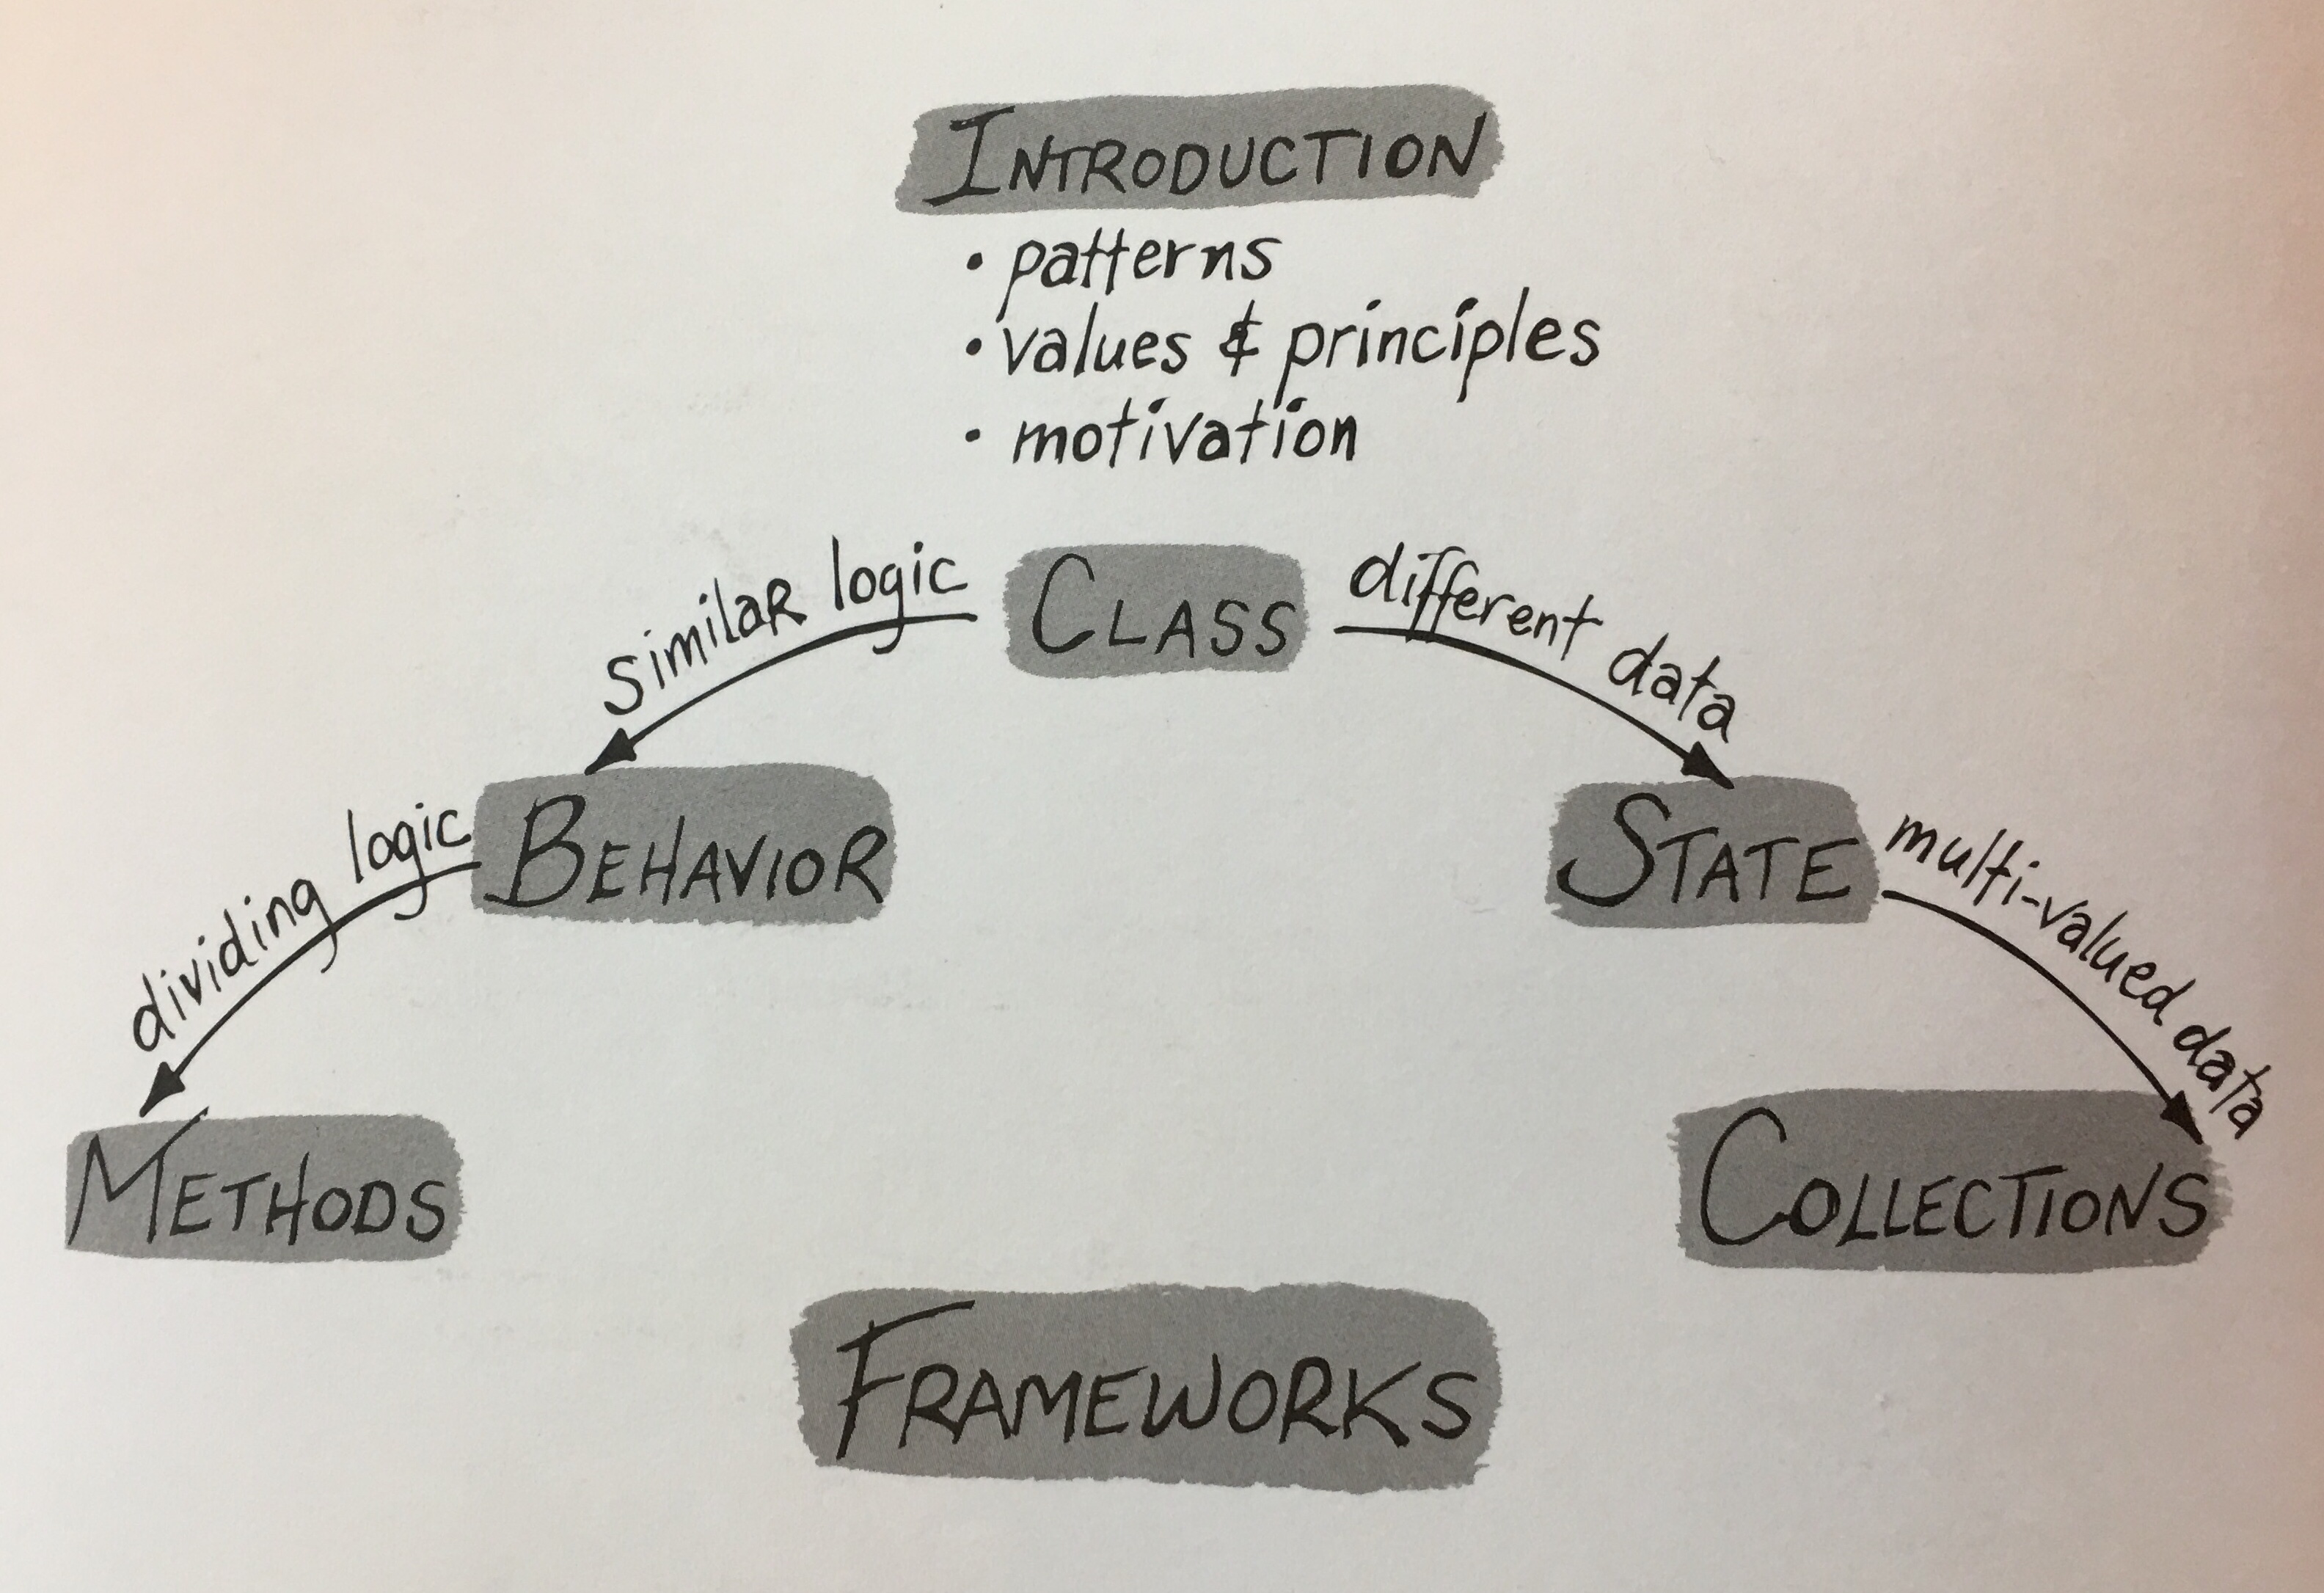 INTRODUCTION
• patterns
• values & principles
• motivation
similar logic
CLASS
different data
dividing logic
BEHAVIOR
STATE
multi-valued data
METHODS
COLLECTIONS
FRAMEWORKS